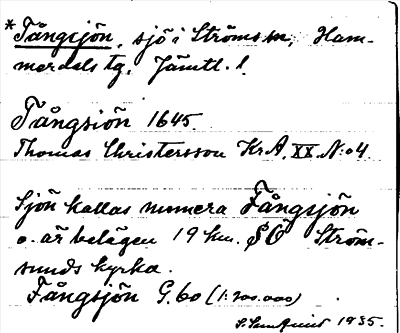 *Fångsjön, sjö i Ströms sn, Ham-
merdals tg, Jämtl. l.
Fångsiön 1645.
Thomas Christersson KrA, XX N:o 4.
Sjön kallas numera Fångsjön
o. är belägen 19 km. SÖ Ström-
sunds kyrka.
Fångsjön G. 60 (1:200.000)
1935.